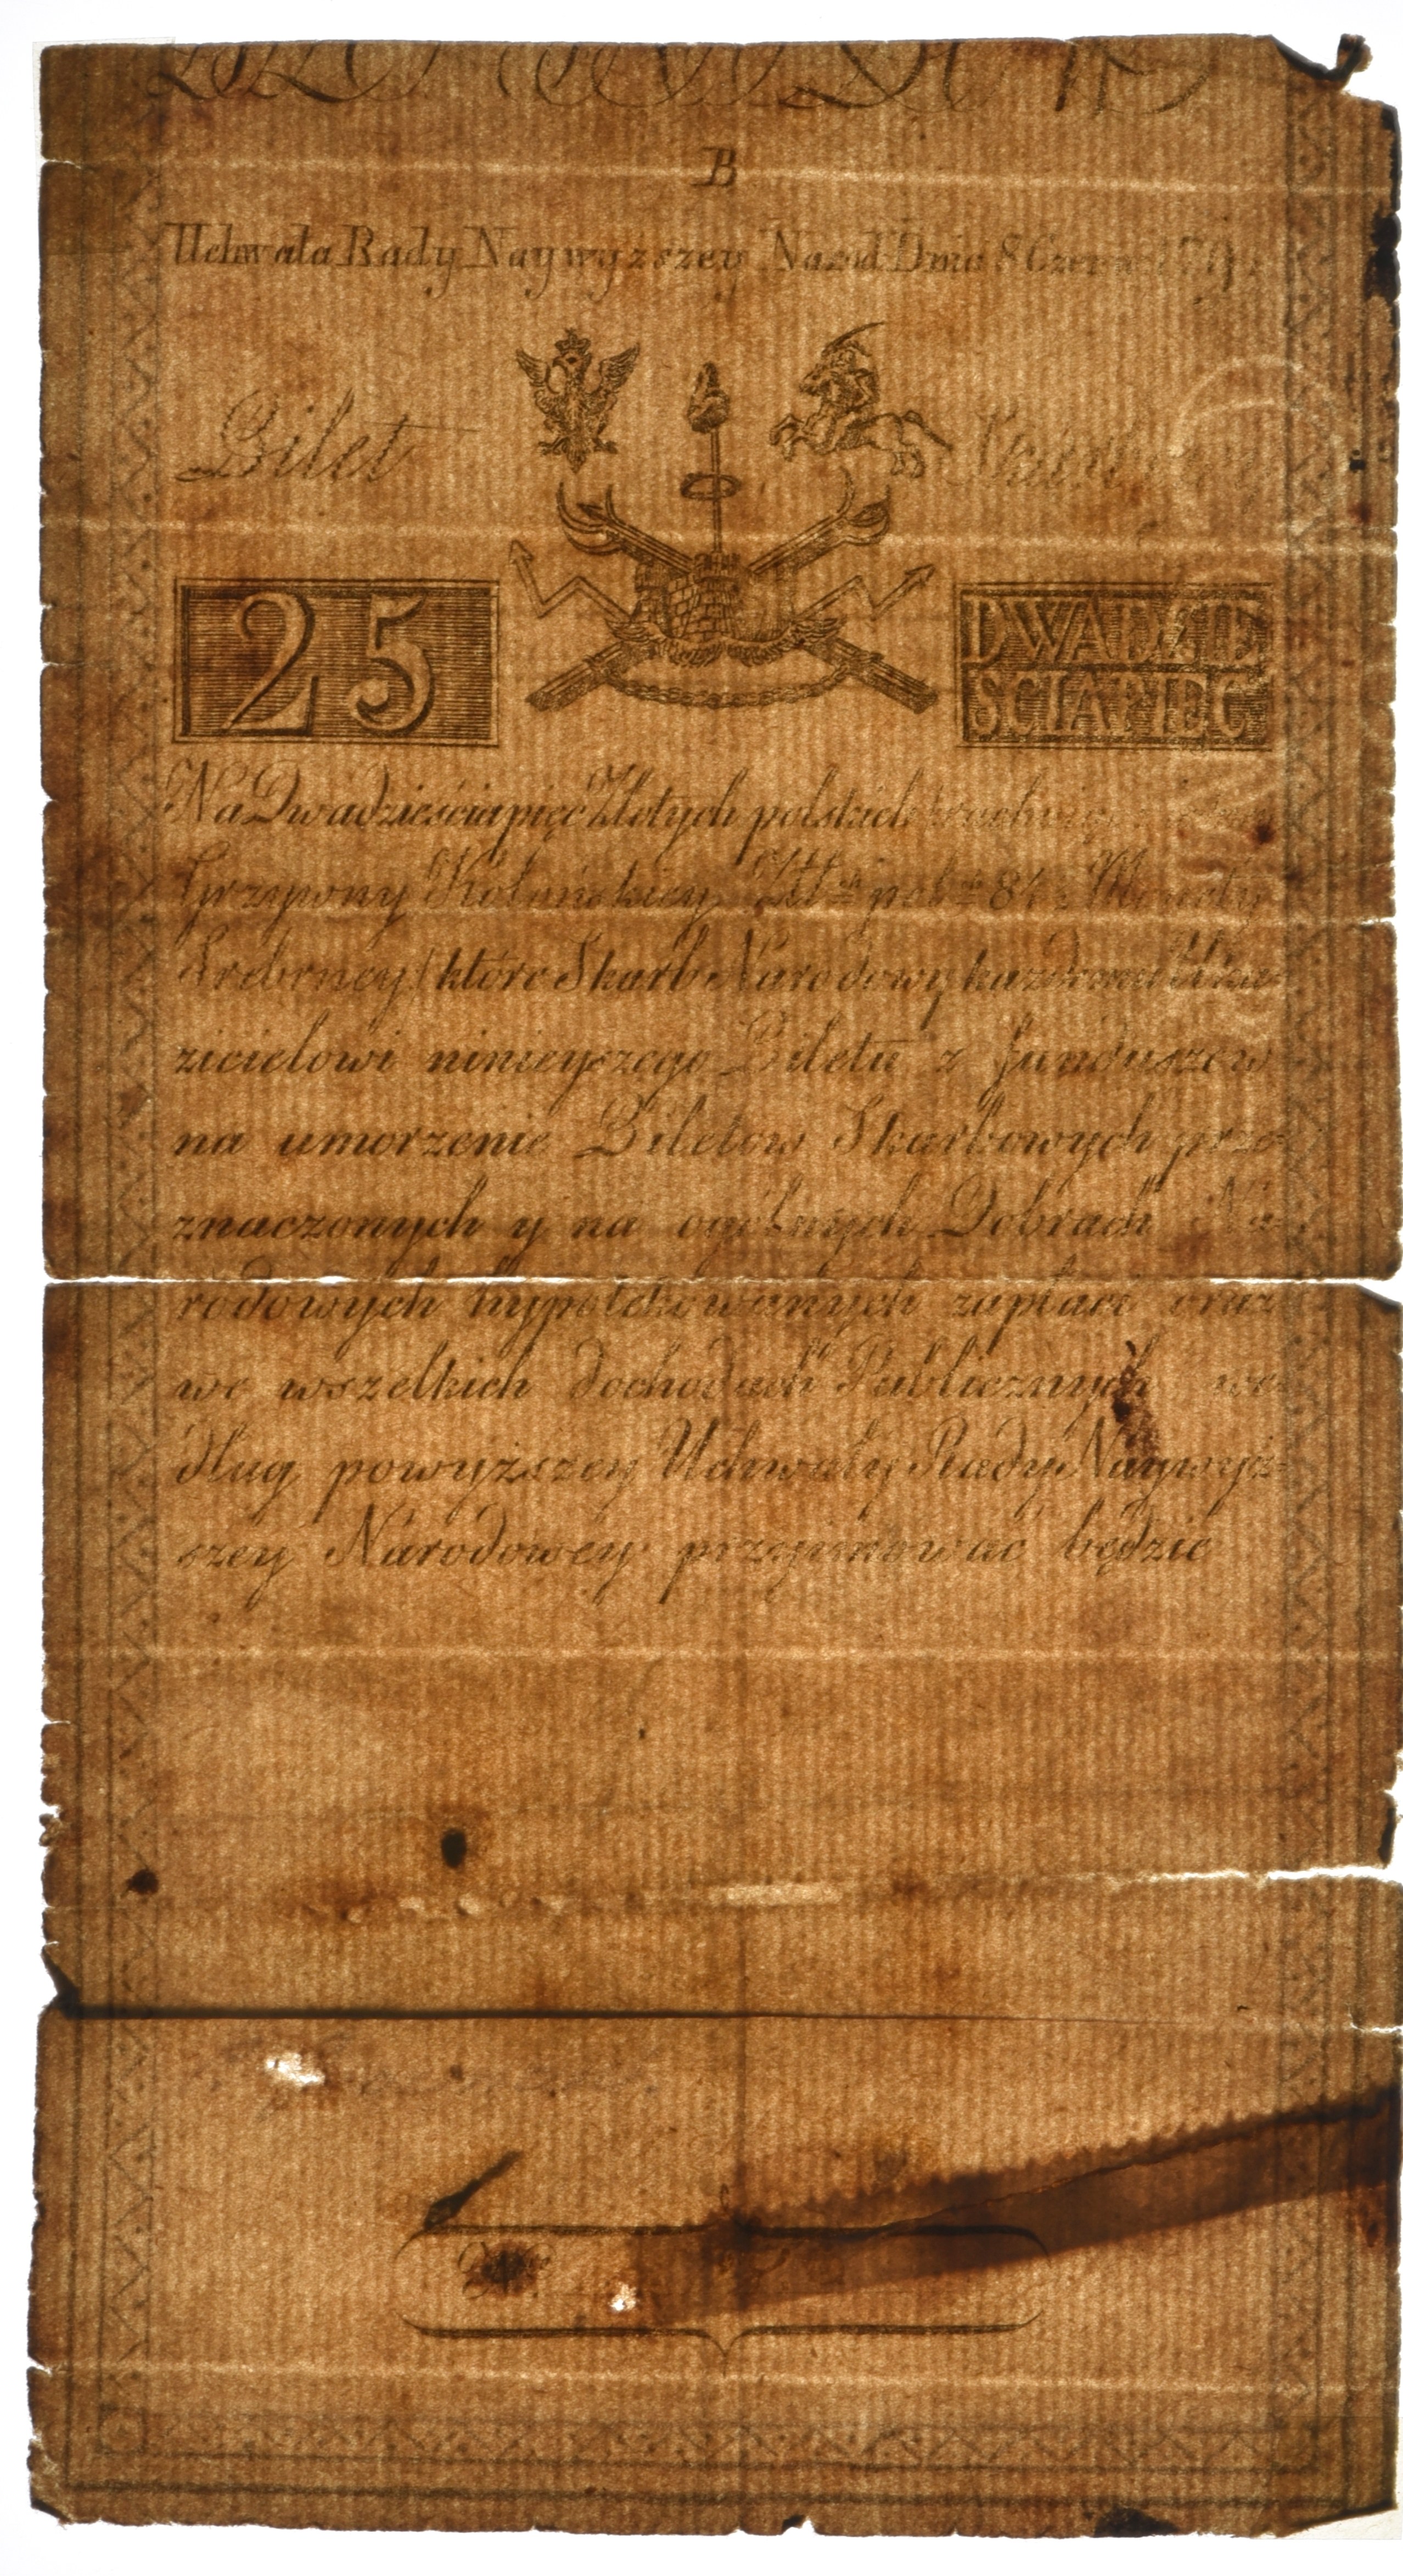 B
Uchwała Rady Naywyższey Narod: Dnia 8 Czerw: 179
Bilet
25
DWADZIE
SCIAPIEC
Na Dwadzieściapięć Złotych polskich
Grzywny Kolońskiey Zł: pol: 84 Monety
Srebrney/ które Skarb Narodowy każdemu
zicielowi ninieyszego Biletu z funduszow
na umorzenie Biletow Skarbowych prze-
znaczonych y na ogólnych Dobrach Na-
rodowych hypotekowanych zapłaci oraz
we wszelkich dochodach Publicznych we-
dług powyższey Uchwały Rady Naywyż-
szey Narodowey przyimować będzie